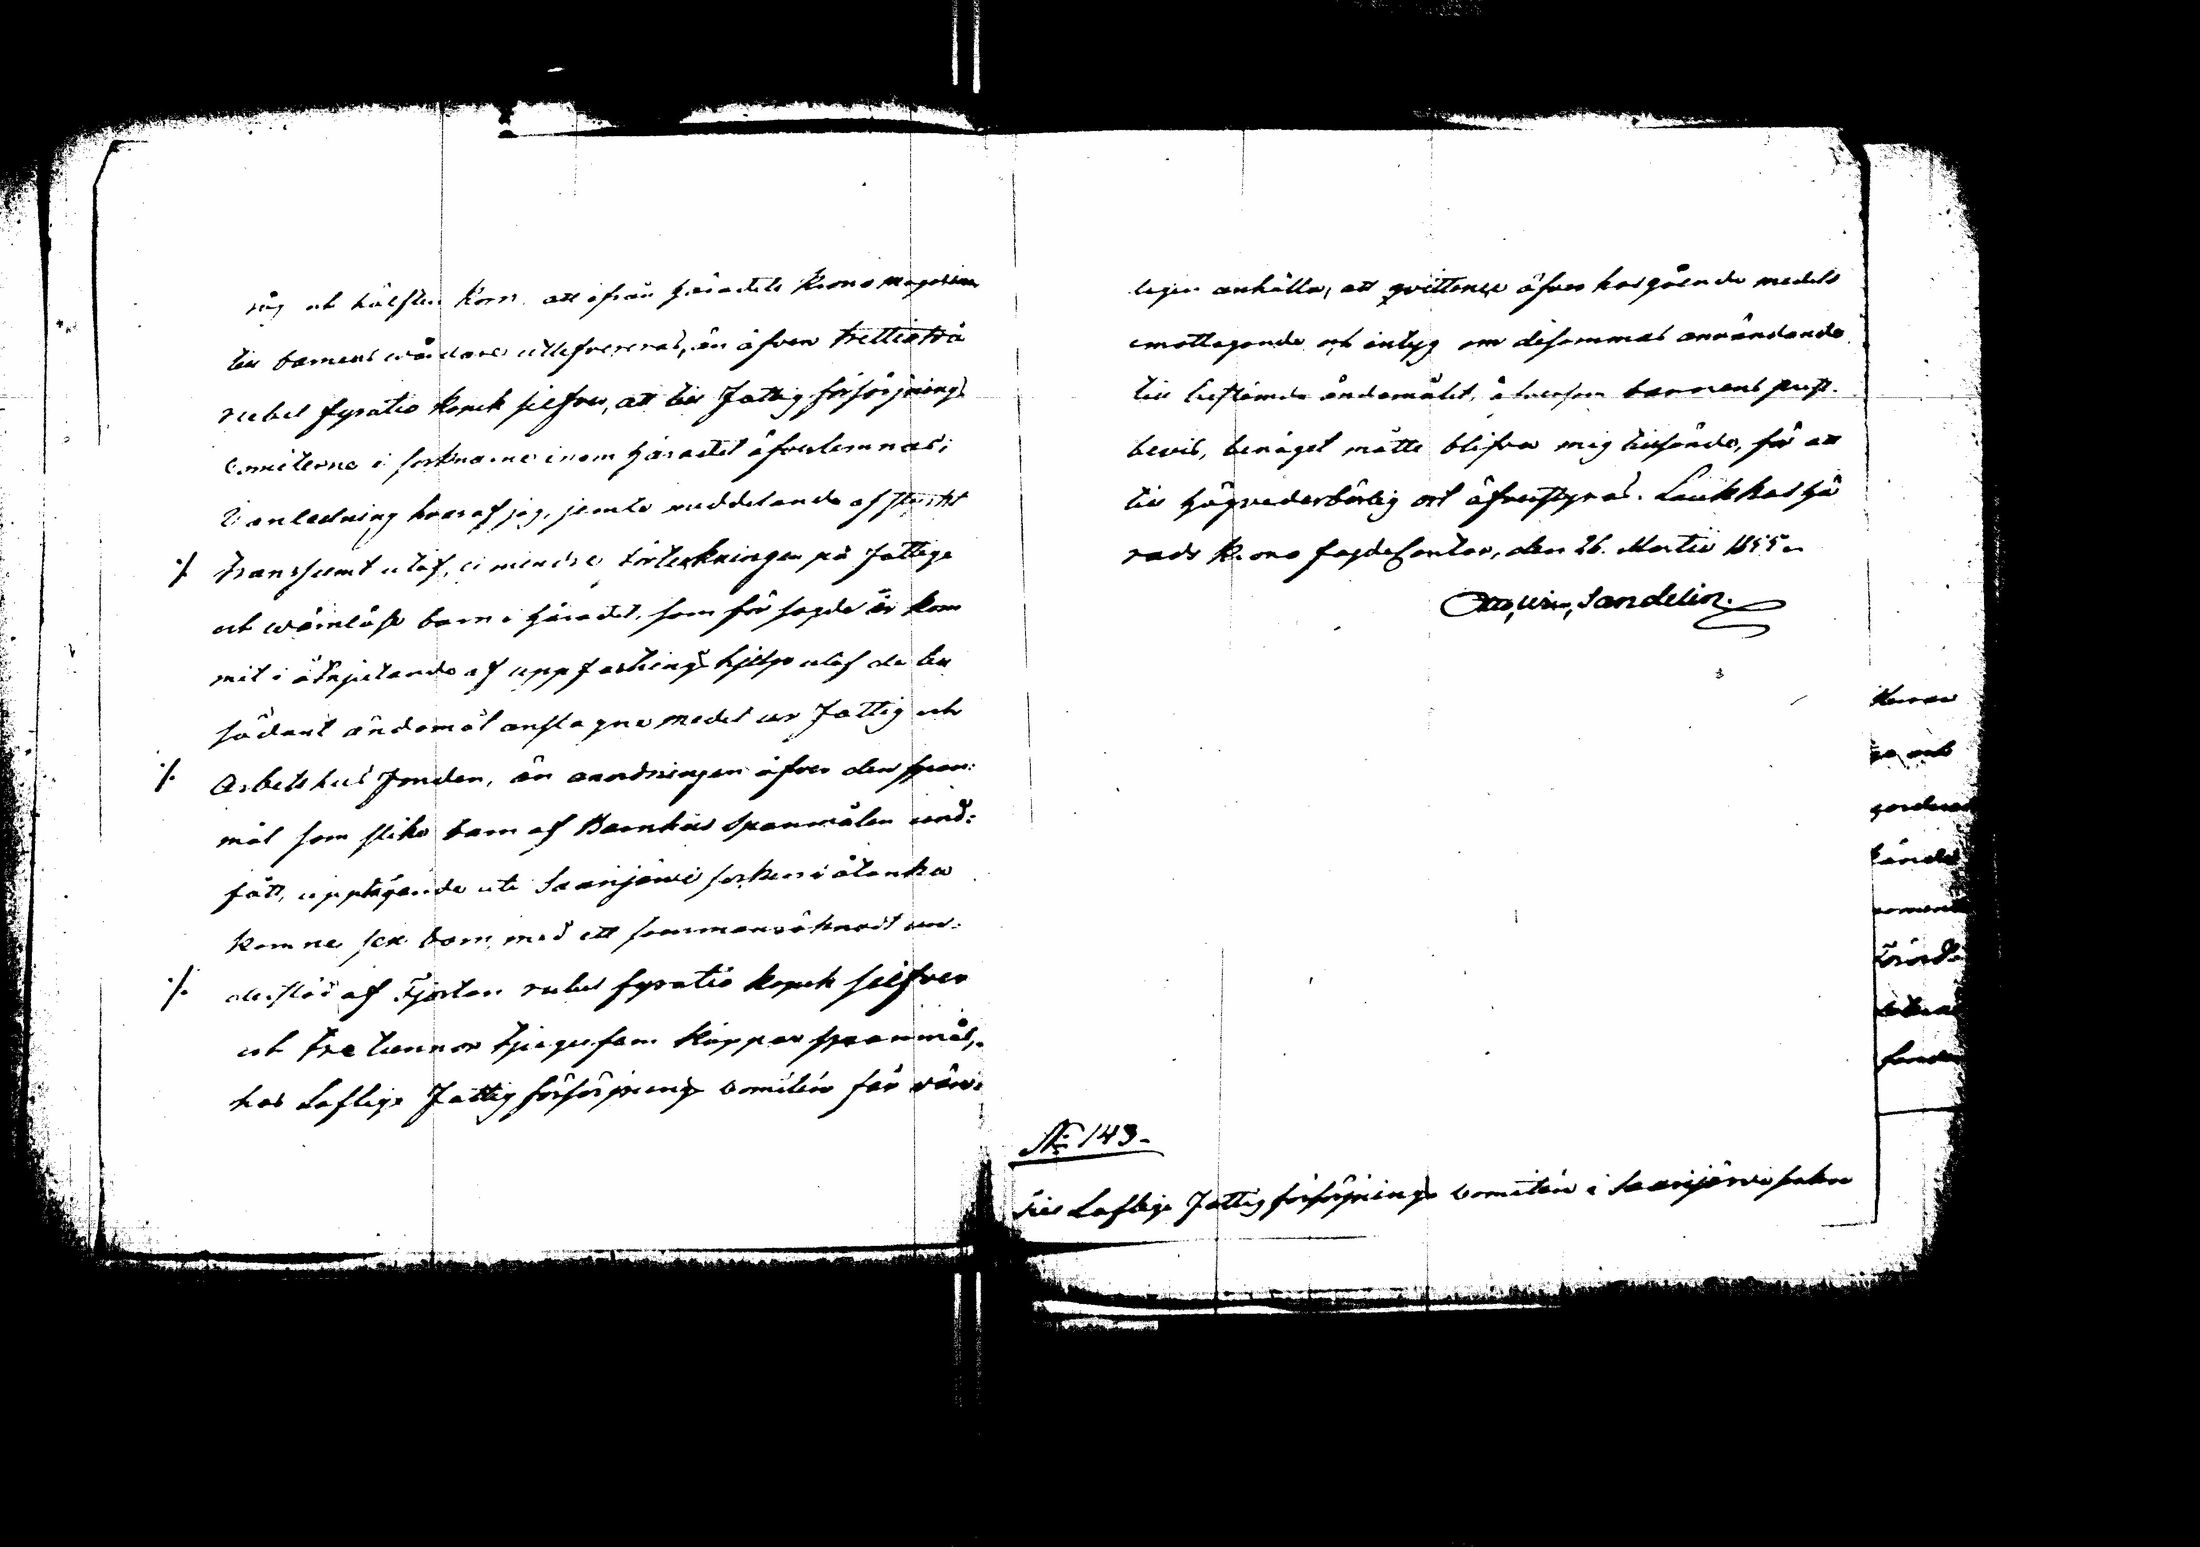 råg och hälften korn att ifrån häradets Krono magasin
till barnens vårdare utlefvereras, än äfven trettiotvå
rubel fyratio kopek silfver, att till Fattigförsörjnings
Comitéerne i socknarne inom häradet öfverlemnas;
I anledning hvaraf jag, jemte meddelande af styckt
⁒ transsumt utaf, ej mindre förteckningen på fattige
och wärnlöse barn i häradet, som för sagde år kom
mit i åtnjutande af uppfostringshjelp utaf de till
sådant ändamål anslagne medel ur Fattig och
⁒ Arbetshus fonden, än anordningen öfver den span:
mål som slike barn af Barnhus Spanmålen und:
fått, upptagande uti Saarijärvi socken i åtanka
komne sex barn, med ett sammanräknadt un-
⁒ derstöd af Fjorton rubel fyratio kopek silfver
och tre tunnor tjugufem kappar spanmål,
hos Loflige Fattigförsörjnings Comitéen får vän-
ligen anhålla, att qvittence öfver hosgående medels
emottagande och intyg om desammas användande
till bestämda ändamålet, äfvensom barnens prest-
bevis, benäget måtte blifva mig tillsände, för att
till högvederbörlig ort öfverstyras. Laukkas Hä
rads Krono fogde Contor, den 26. Martii 1855.
Otto Wilh. Sandelin.
No 143.
Till Loflige Fattigförsörjnings Comitéen i Saarijärvi socken